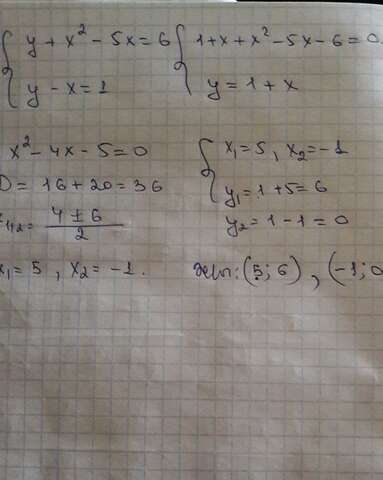 y + x² - 5x = 6
y - x = 1
1 + x + x² - 5x - 6 = 0
y = 1 + x
x² - 4x - 5 = 0
D = 16 + 20 = 36
x₁,₂ = (4 ± 6)/2
x₁ = 5 , x₂ = -1.
x₁ = 5 , x₂ = -1
y₁ = 1 + 5 = 6
y₂ = 1 - 1 = 0
(5; 6) , (-1; 0